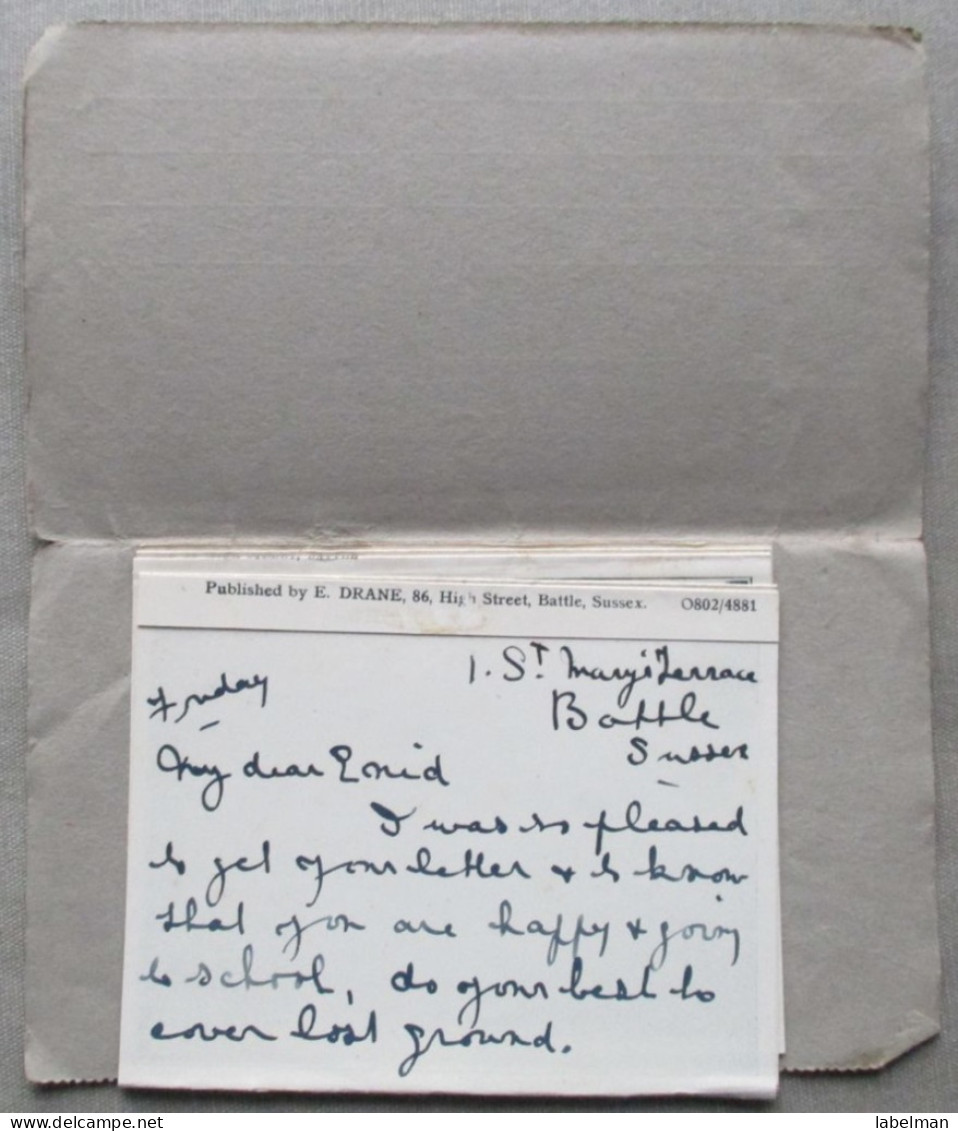 Published by E. DRANE, 86, High Street, Battle, Sussex. O802/4881
1. St. Mary's Terrace
Friday
Battle
Sussex
My dear Enid
I was so pleased
to get your letter & to know
that you are happy & going
to school, do your best to
cover lost ground.
delcampe.net
labelman